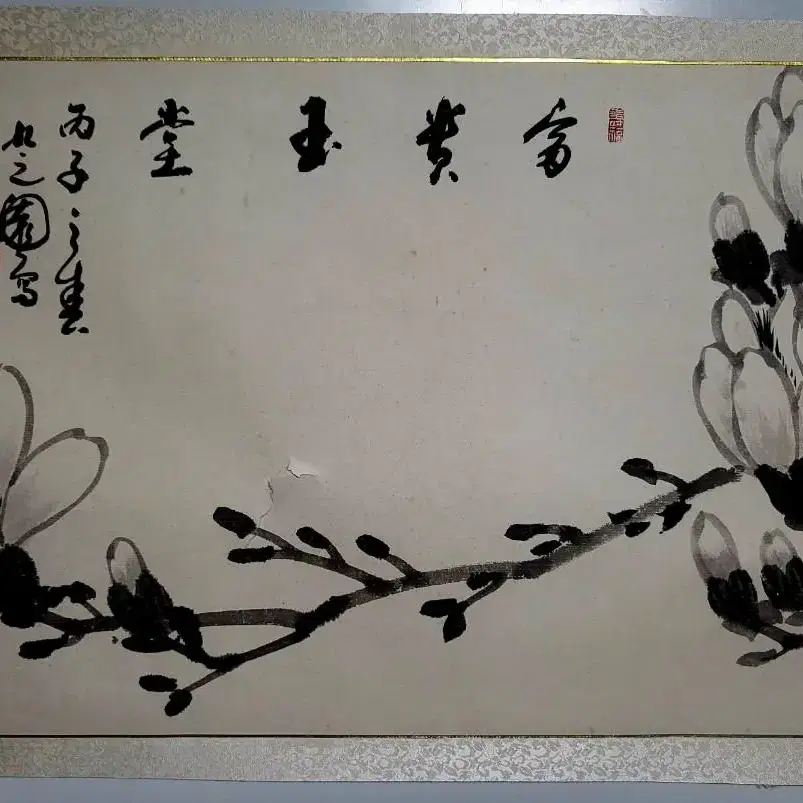 富貴玉堂
丙子之春
園寫